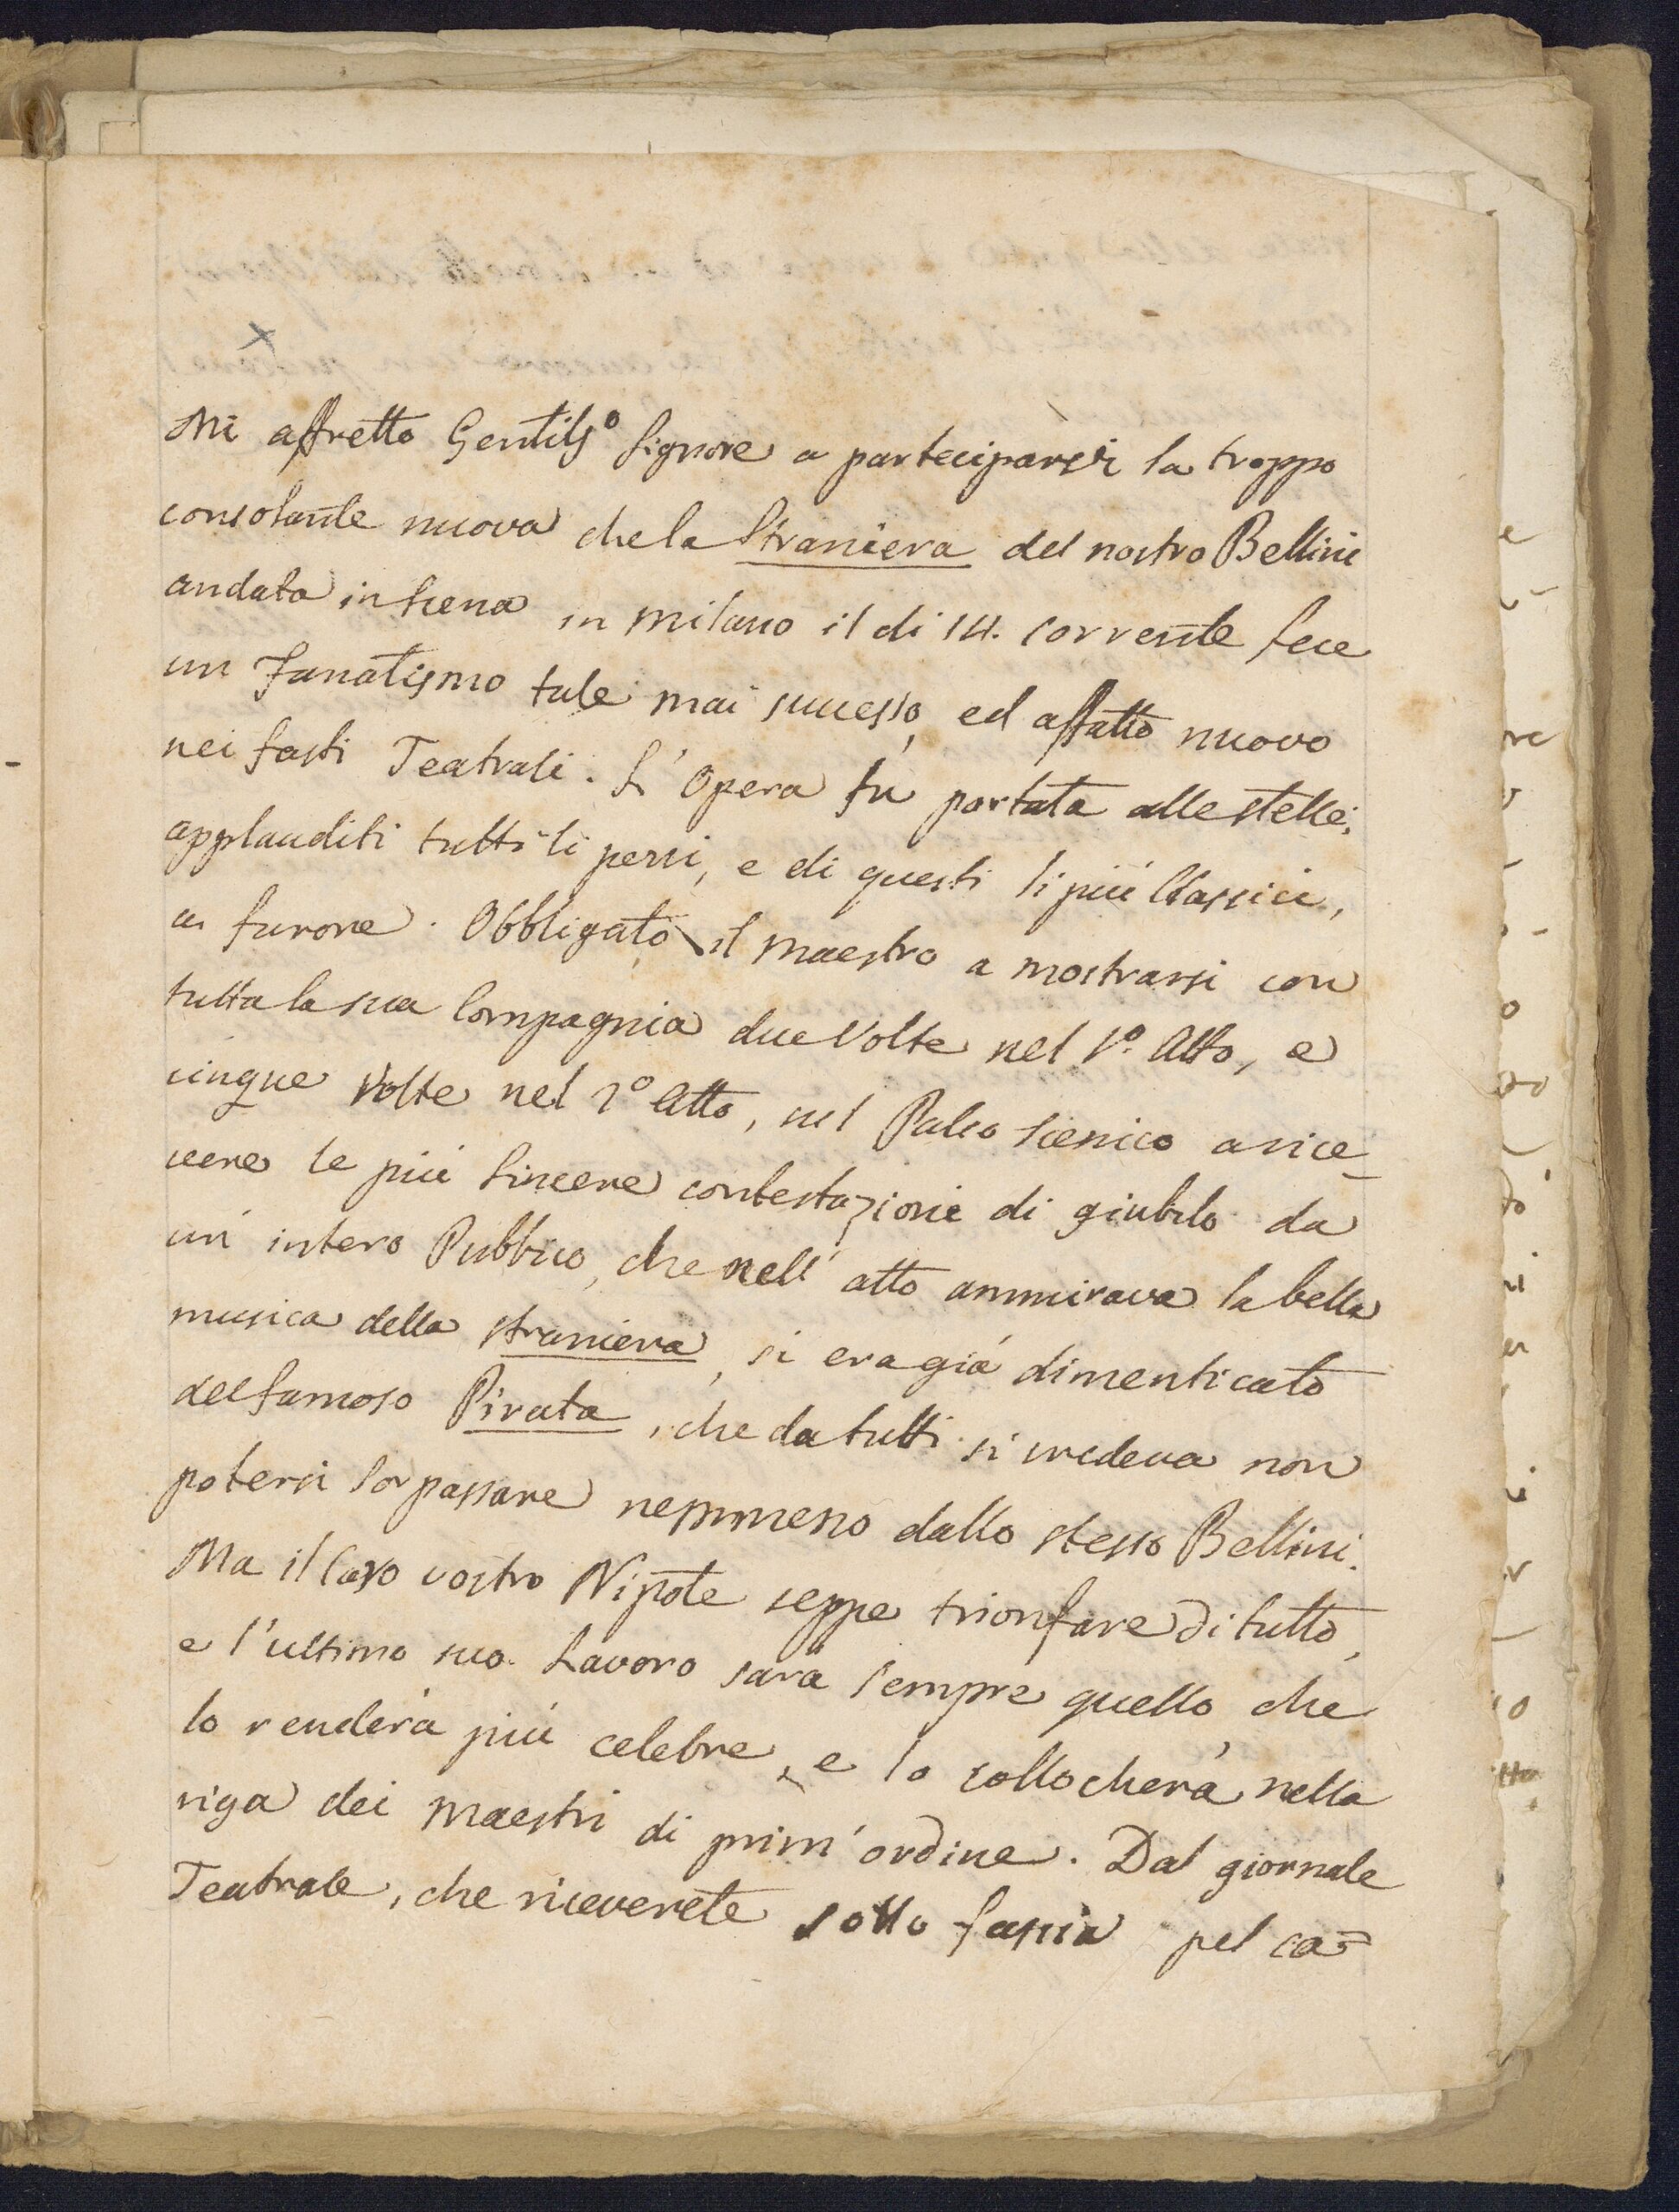 Mi affretto Gentilso Signore a parteciparvi la troppo
consolante nuova che la Straniera del nostro Bellini
andata in Scena in Milano il di 14. corrente fece
un Fanatismo tale mai successo, ed affatto nuovo
nei fasti Teatrali. L'Opera fu portata alle stelle,
applauditi tutti li pezzi, e di questi li più Classici,
a furore. Obbligato il Maestro a mostrarsi con
tutta la sua Compagnia due Volte nel 1o. Atto, e
cinque Volte nel 2o Atto, sul Palco Scenico a rice-
vere le più Sincere contestazioni di giubilo da
un intero Pubblico, che nell'atto ammirava la bella
musica della Straniera, si era già dimenticato
del famoso Pirata, che da tutti si credeva non
potersi Sorpassare nemmeno dallo stesso Bellini.
Ma il Caro vostro Nipote seppe trionfare di tutto,
e l'ultimo suo Lavoro sarà Sempre quello, che
lo renderà più celebre, e lo collocherà nella
riga dei Maestri di prim'ordine. Dal giornale
Teatrale, che riceverete sotto fascia pel ca=